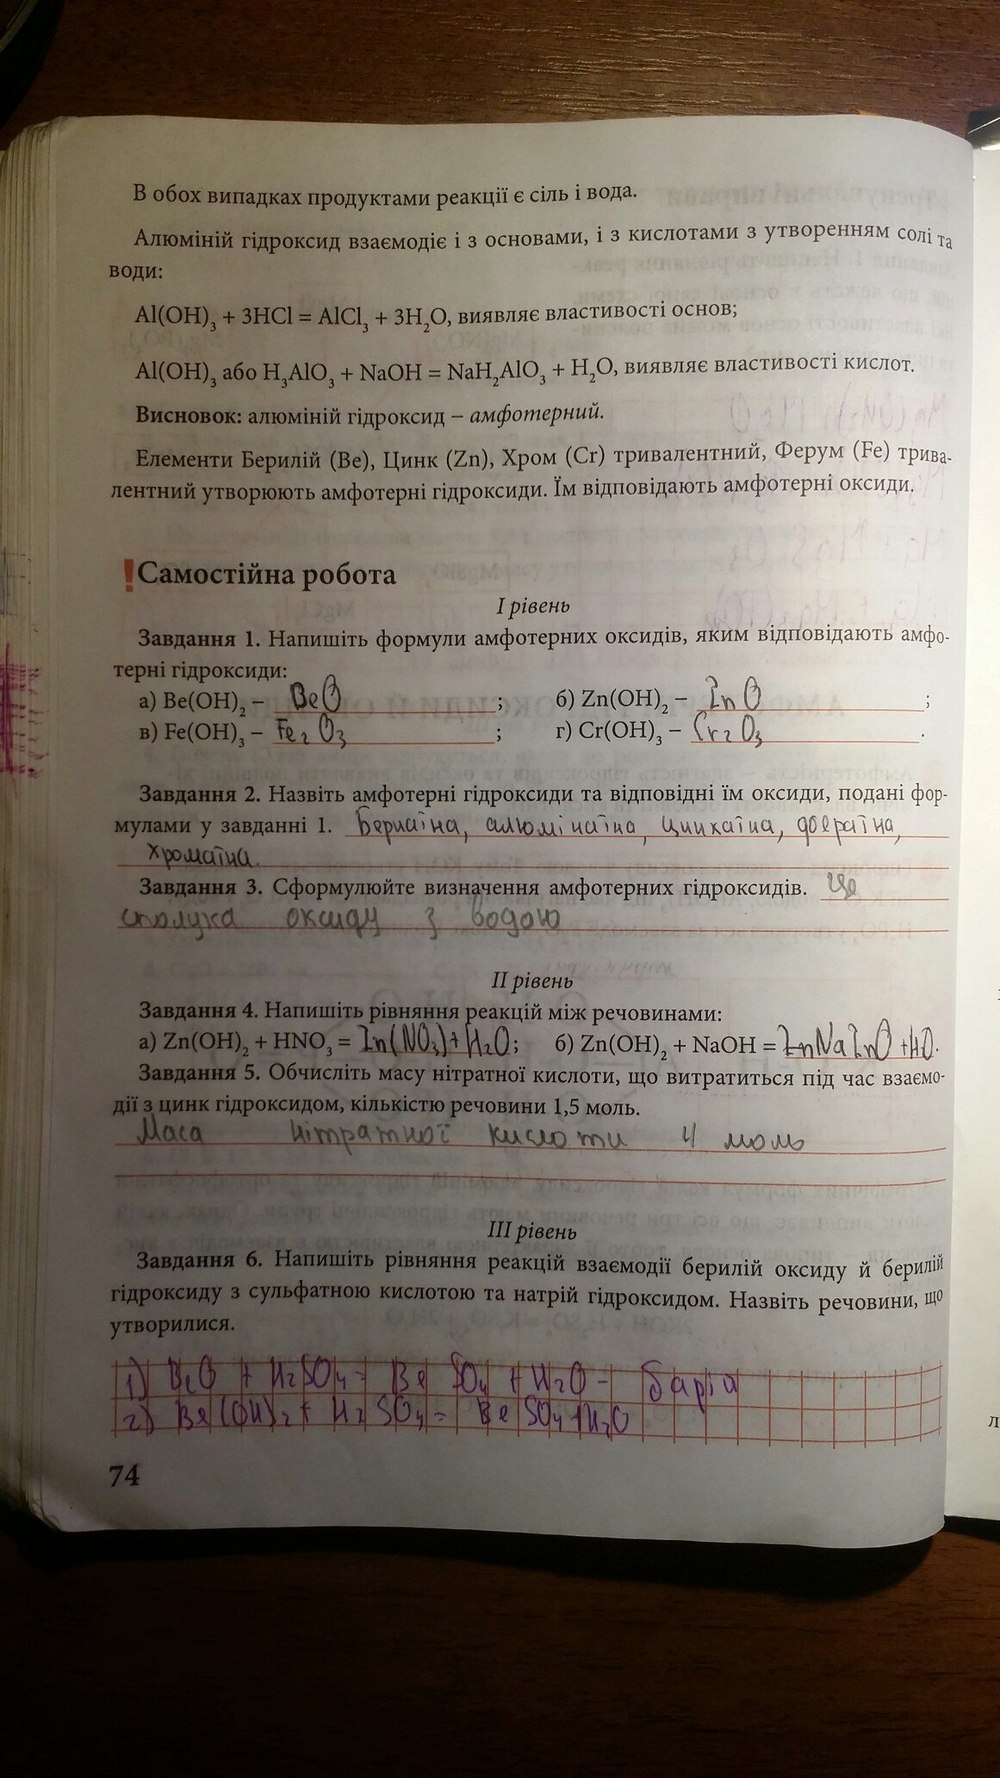 В обох випадках продуктами реакції є сіль і вода.
Алюміній гідроксид взаємодіє і з основами, і з кислотами з утворенням солі та
води:
Al(OH)₃ + 3HCl = AlCl₃ + 3H₂O, виявляє властивості основ;
Al(OH)₃ або H₃AlO₃ + NaOH = NaH₂AlO₃ + H₂O, виявляє властивості кислот.
Висновок: алюміній гідроксид – амфотерний.
Елементи Берилій (Be), Цинк (Zn), Хром (Cr) тривалентний, Ферум (Fe) трива-
лентний утворюють амфотерні гідроксиди. Їм відповідають амфотерні оксиди.
! Самостійна робота
І рівень
Завдання 1. Напишіть формули амфотерних оксидів, яким відповідають амфо-
терні гідроксиди:
а) Be(OH)₂ – BeO ; б) Zn(OH)₂ – ZnO ;
в) Fe(OH)₃ – Fe₂O₃ ; г) Cr(OH)₃ – Cr₂O₃ .
Завдання 2. Назвіть амфотерні гідроксиди та відповідні їм оксиди, подані фор-
мулами у завданні 1. алюмінаїна, цинкаїна,
хромаїна.
Завдання 3. Сформулюйте визначення амфотерних гідроксидів. Це
сполука оксиду з водою
ІІ рівень
Завдання 4. Напишіть рівняння реакцій між речовинами:
а) Zn(OH)₂ + HNO₃ = Zn(NO₃)+H₂O; б) Zn(OH)₂ + NaOH =
Завдання 5. Обчисліть масу нітратної кислоти, що витратиться під час взаємо-
дії з цинк гідроксидом, кількістю речовини 1,5 моль.
Маса нітратної кислоти 4 моль
ІІІ рівень
Завдання 6. Напишіть рівняння реакцій взаємодії берилій оксиду й берилій
гідроксиду з сульфатною кислотою та натрій гідроксидом. Назвіть речовини, що
утворилися.
1) BeO + H₂SO₄ = BeSO₄ + H₂O – барія
2) Be(OH)₂ + H₂SO₄ = BeSO₄+H₂O
74